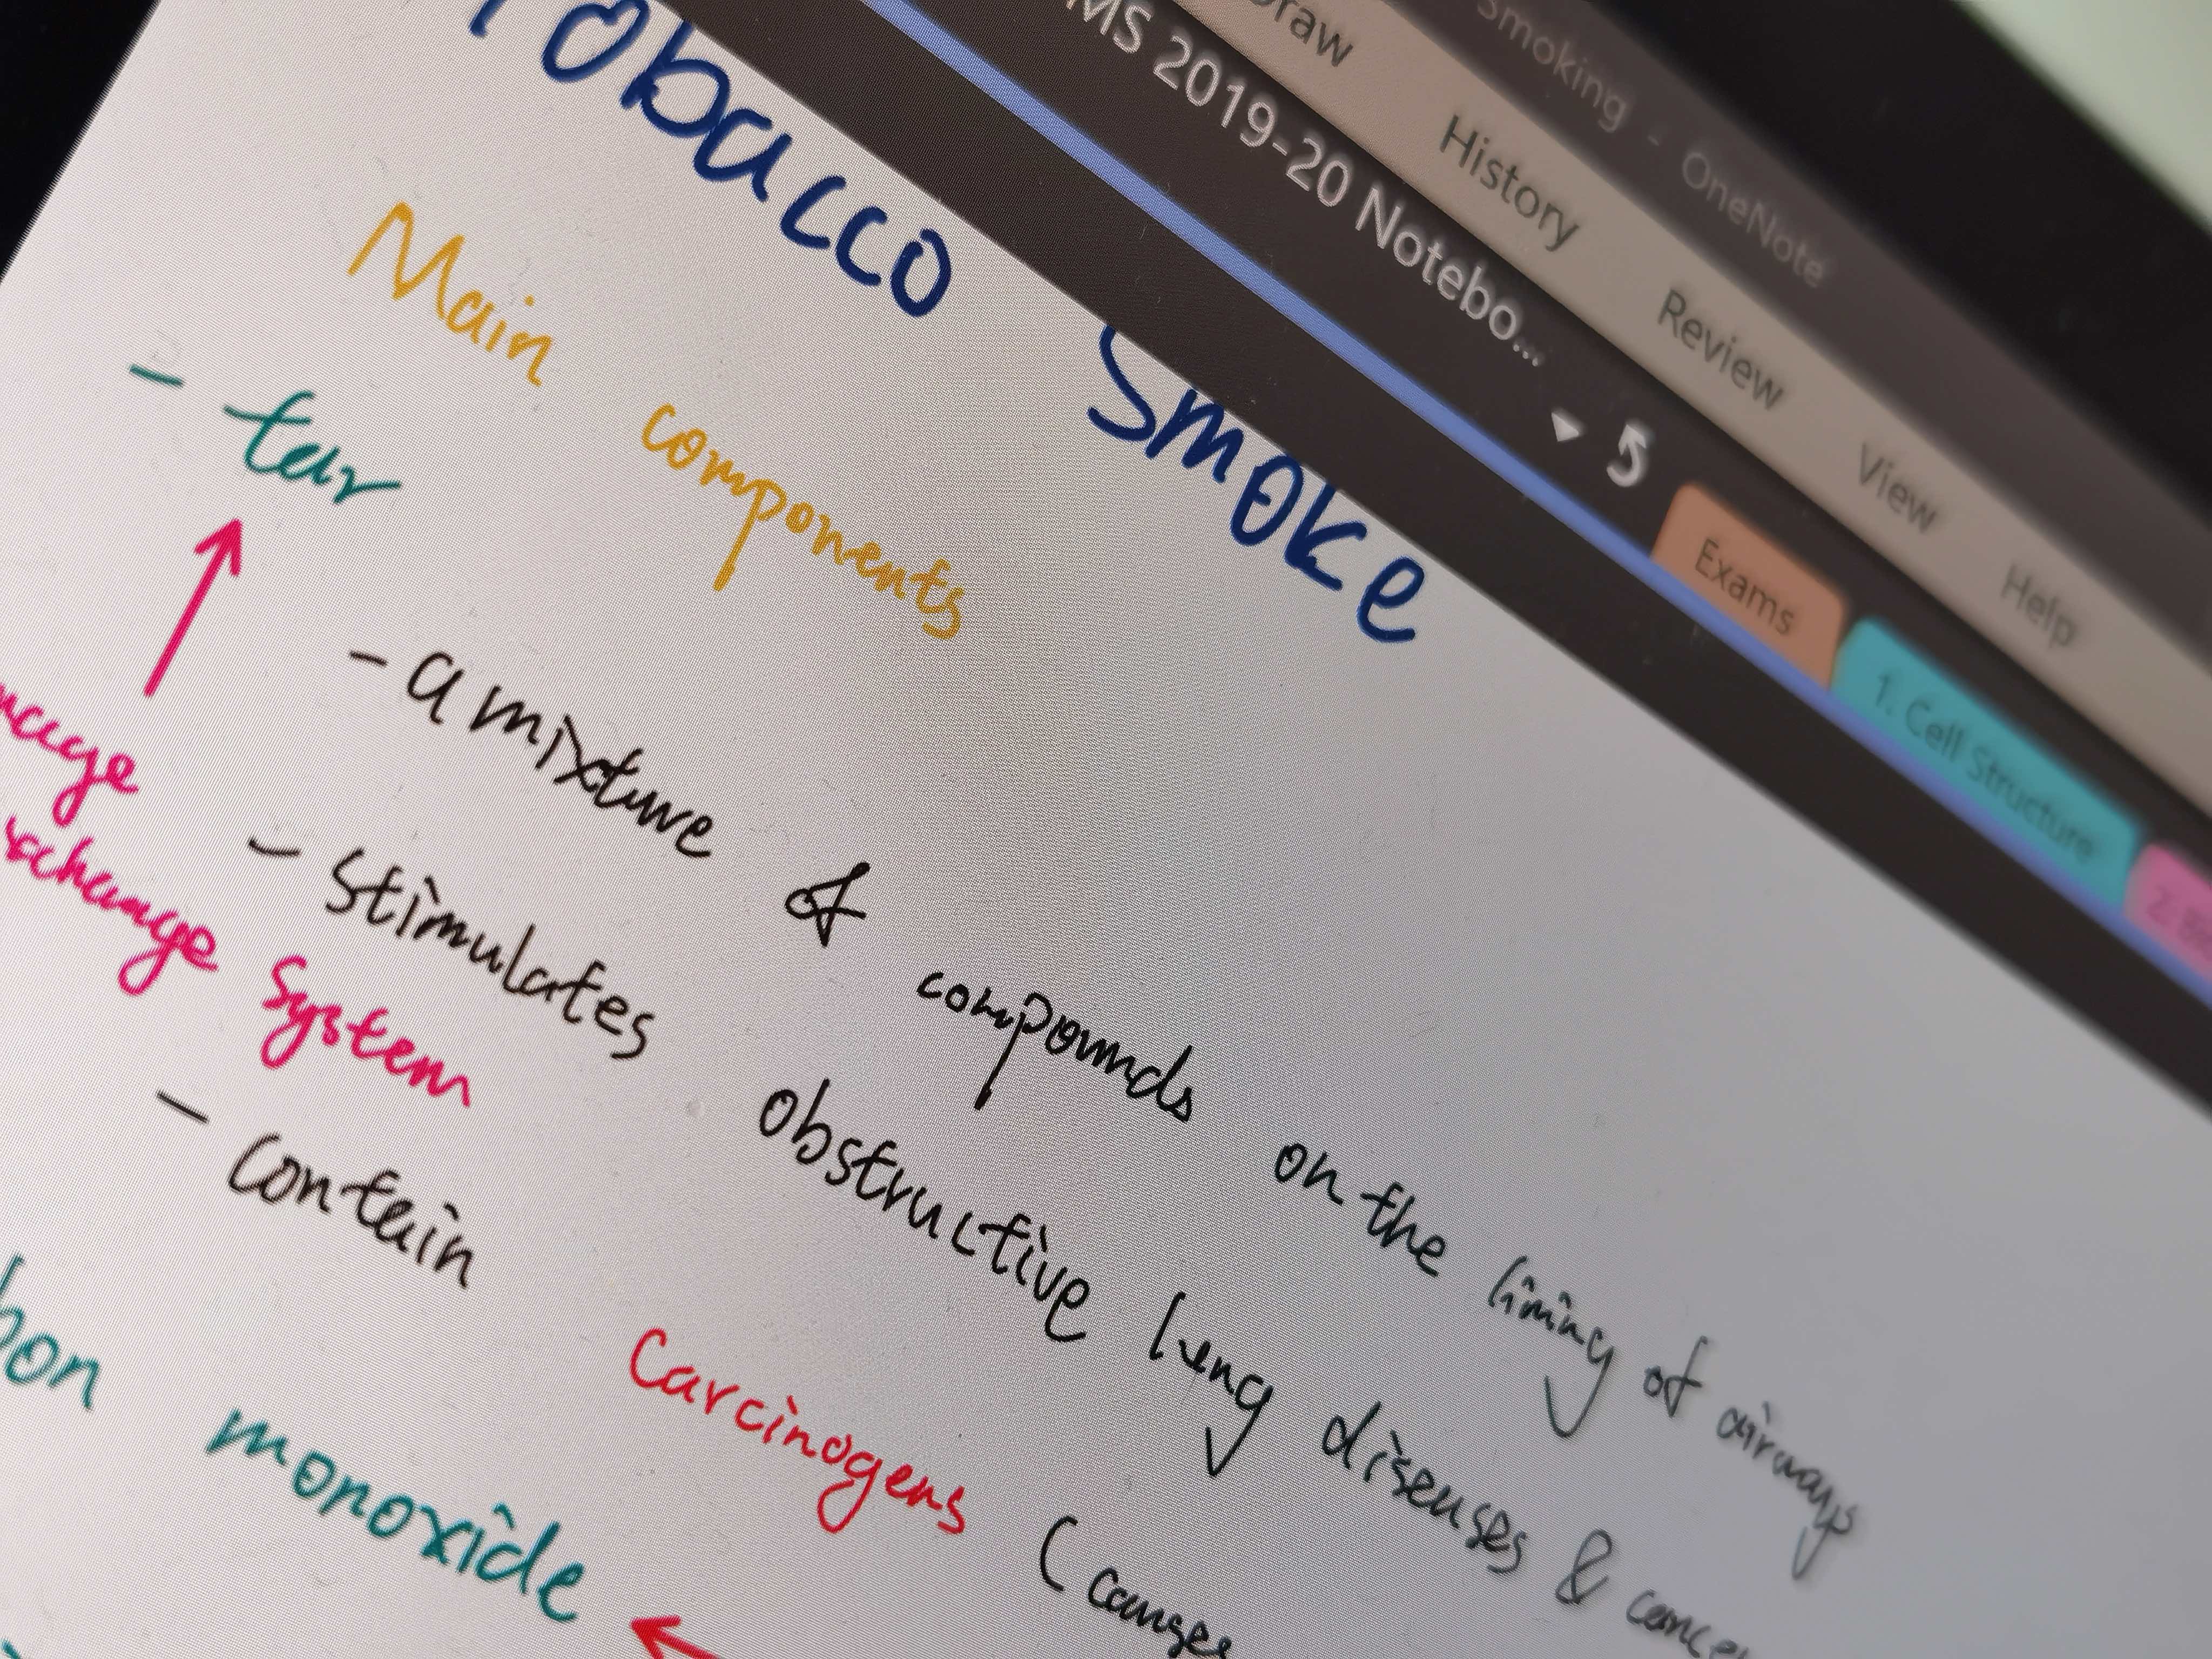 Smoking - OneNote
raw History Review View Help
MS 2019-20 Notebo... 5 Exams 1. Cell Structure 2.
Tobacco Smoke
Main components
- tar
- a mixture of compounds on the lining of airways
- stimulates obstructive lung diseases & cancer
- contain Carcinogens (causes
mage
xchange System
bon monoxide